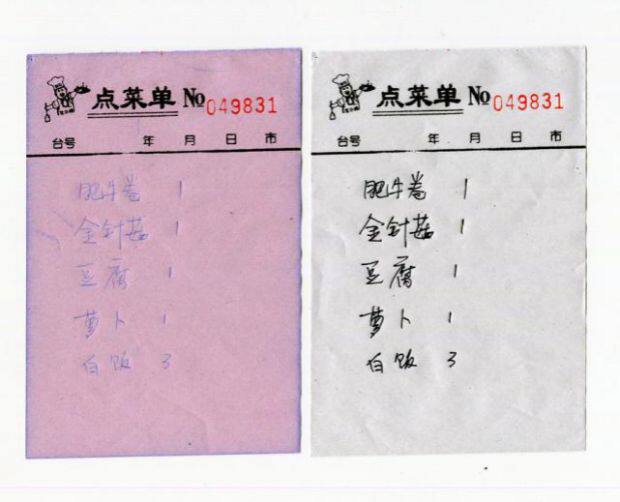 点菜单 No 049831
台号 年 月 日 市
肥牛卷 1
金针菇 1
豆腐 1
萝卜 1
白饭 3
点菜单 No 049831
台号 年 月 日 市
肥牛卷 1
金针菇 1
豆腐 1
萝卜 1
白饭 3